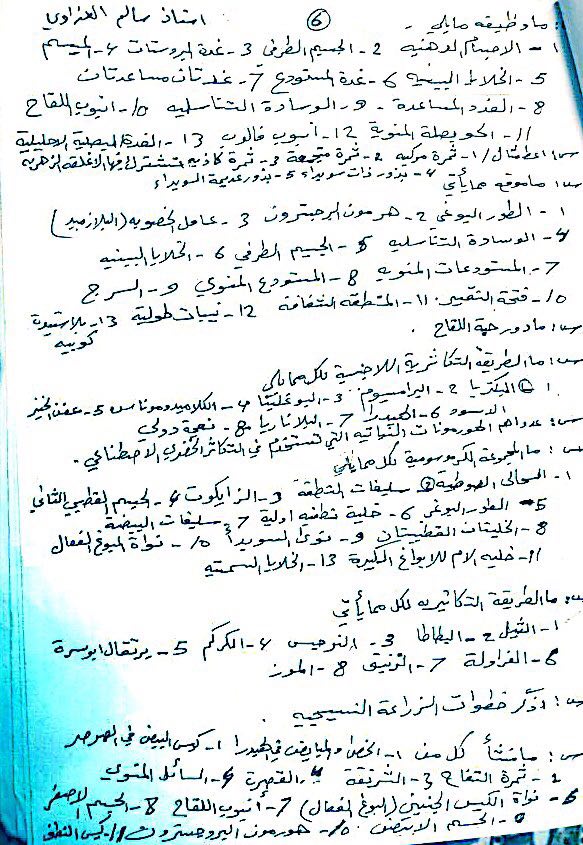 استاذ سالم الغزاوي
6
س: ما وظيفة ما يلي.
1- الاجسام الدهنية 2- الجسيم الطرفي 3- غدة البروستات 4- الميسم
5- الخلايا البينية 6- غدة المستودع 7- غدتان مساعدتان
8- الغدد المساعدة. 9- الوسادة التناسلية 10- انبوب اللقاح
11- الحويصلة المنوية 12- انبوب فالوب 13- الغدة البصلية الاحليلية
س: اعط مثال / 1- ثمرة مركبة 2- ثمرة متجمعة 3- ثمرة كاذبة تشترك فيها الاغلفة الزهرية
4- بذور ذات سويداء 5- بذور عديمة السويداء
س: ما موقع ما يأتي
1- الطور البوغي 2- هرمون البرجسترون 3- عامل الخصوبة (البلازميد)
4- الوسادة التناسلية 5- الجسيم الطرفي 6- الخلايا البينية
7- المستودعات المنوية 8- المستودع المنوي 9- السرج
10- فتحة النقير 11- المنطقة الشفافة 12- نبيبات طولية 13- بلاستيدة كوبية
س: ما دور حبة اللقاح.
س: ما الطريقة التكاثرية اللاجنسية لكل مما يلي
1- البكتريا 2- البرامسيوم 3- اليوغلينا 4- الكلاميدوموناس 5- عفن الخبز
الاسود 6- الهيدرا 7- البلاناريا 8- نجمة دولي
س: عدد اهم الهورمونات النباتية التي تستخدم في التكاثر الخضري الاصطناعي.
س: ما المجموعة الكروموسومية لكل مما يلي
1- السحالي السوطية 2- سليفات النطفة 3- الزايكوت 4- الجسيم القطبي الثاني
5- الطور البوغي 6- خلية نطفة اولية 7- سليفات البيضة
8- الخليتان القطبيتان 9- نوى السويداء 10- نواة البوغ الفعال
11- خلية الام للابواغ الكبيرة 13- الخلايا السمتية
س: ما الطريقة التكاثرية لكل مما يأتي
1- الثيل 2- البطاطا 3- النرجس 4- الكركم 5- برتقال ابو سرة
6- الفراولة 7- الزنبق 8- الموز
س: اذكر خطوات الزراعة النسيجية
س: ما منشأ كل من 1- الخصى والمبايض في الهيدرا 1- كيس البيض في الصرصر
2- ثمرة التفاح 3- الشرنقة 4- القصرة 4- السائل المنوي
5- نواة الكيس الجنيني (البوغ الفعال) 7- انبوب اللقاح 8- الجسم الاصفر
9- الجسم الابيض 10- هورمون البروجسترون 11- كيس النطف